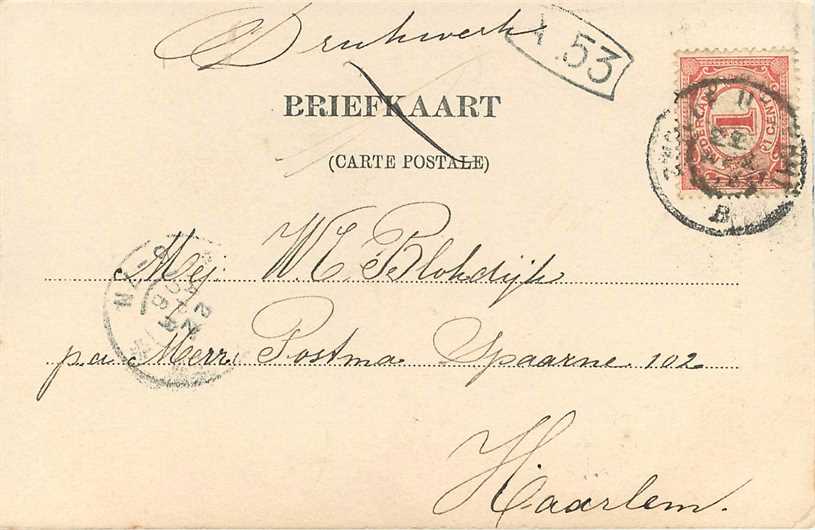 Drukwerk
53
BRIEFKAART
(CARTE POSTALE)
1
CENT
B
Mej. W. E. Blokdijk
p.a. Merr. Postma Spaarne 102
Haarlem.